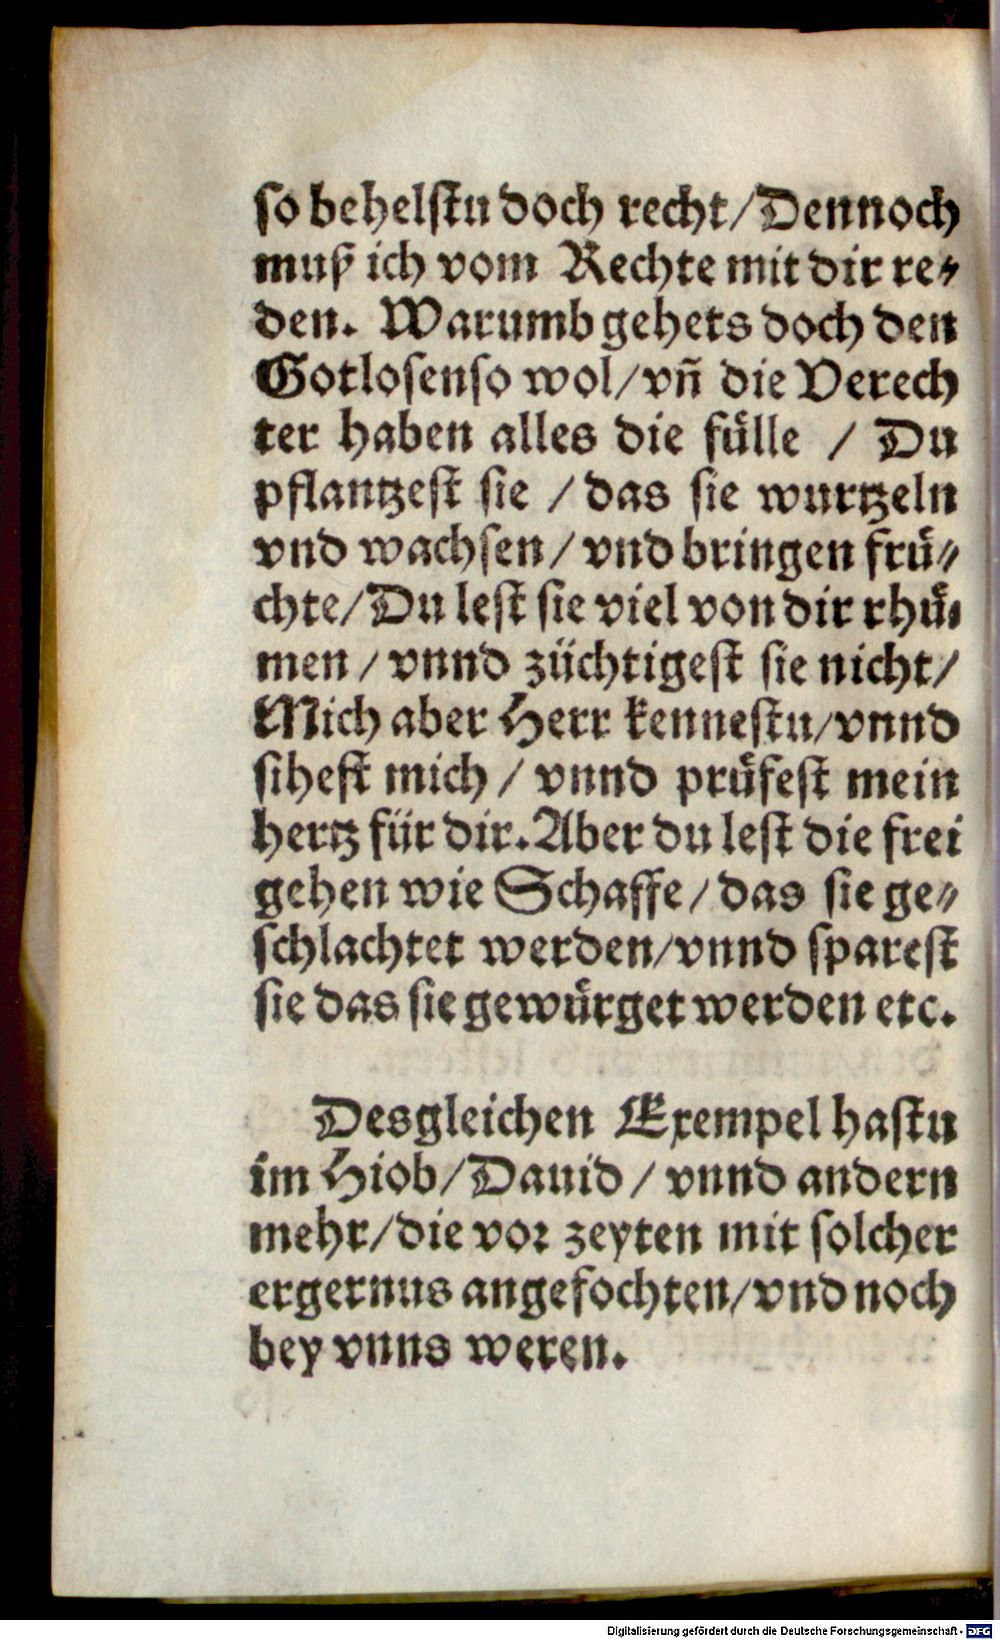 so behelstu doch recht/Dennoch
muß ich vom Rechte mit dir re⸗
den. Warumb gehets doch den
Gotlosenso wol/vñ die Verech
ter haben alles die fülle / Du
pflantzest sie / das sie wurtzeln
vnd wachsen/ vnd bringen frü⸗
chte/Du lest sie viel von dir rhü⸗
men / vnnd züchtigest sie nicht/
Mich aber Herr kennestu/vnnd
sihest mich / vnnd prüfest mein
hertz für dir. Aber du lest die frei
gehen wie Schaffe / das sie ge⸗
schlachtet werden/vnnd sparest
sie das sie gewürget werden etc.
Desgleichen Exempel hastu
im Hiob/Dauid / vnnd andern
mehr/die vor zeyten mit solcher
ergernus angefochten/vnd noch
bey vnns weren.
Digitalisierung gefördert durch die Deutsche Forschungsgemeinschaft - DFG